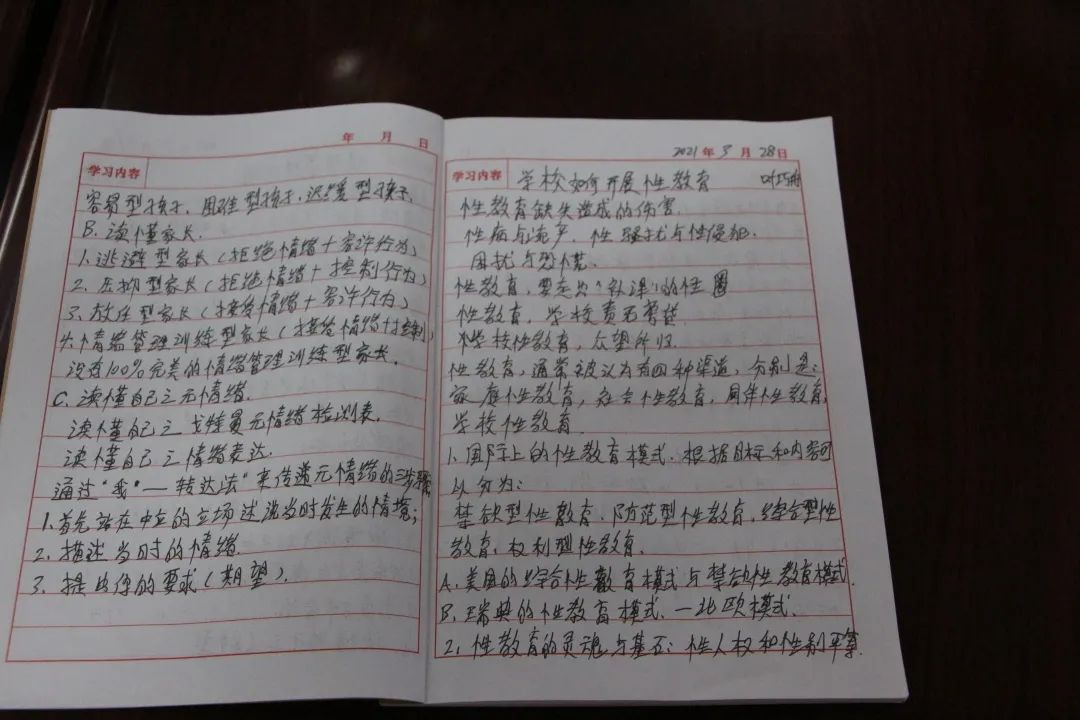 年 月 日
学习内容
容易型孩子,困难型孩子,迟缓型孩子,
B. 读懂家长.
1. 逃避型家长(拒绝情绪+容许行为)
2. 压抑型家长(拒绝情绪+控制行为)
3. 放任型家长(接受情绪+容许行为)
4. 情绪管理训练型家长(接受情绪+控制)
没有100%完美的情绪管理训练型家长.
C. 读懂自己之元情绪.
读懂自己之戈特曼元情绪检测表.
读懂自己之情绪表达.
通过“我”—转达法”来传递元情绪的三步骤
1. 首先站在中立的立场述说当时发生的情境;
2. 描述当时的情绪.
3. 提出你的要求(期望).
2021 年 3 月 28 日
学习内容 学校如何开展性教育
性教育缺失造成的伤害.
性病与流产、性骚扰与性侵犯.
困扰与恐慌.
性教育,要走出“认误”的性圈
性教育,学校责无旁贷.
学校性教育,众望所归.
性教育,通常被认为有四种渠道,分别是:
家庭性教育,社会性教育,同伴性教育,
学校性教育.
1. 国际上的性教育模式.根据目标和内容可
以分为:
禁欲型性教育,防范型性教育,综合型性
教育,权利型性教育.
A. 美国的综合性教育模式与禁欲性教育模式.
B. 瑞典的性教育模式.—北欧模式.
2. 性教育的灵魂与基石:性人权和性别平等.